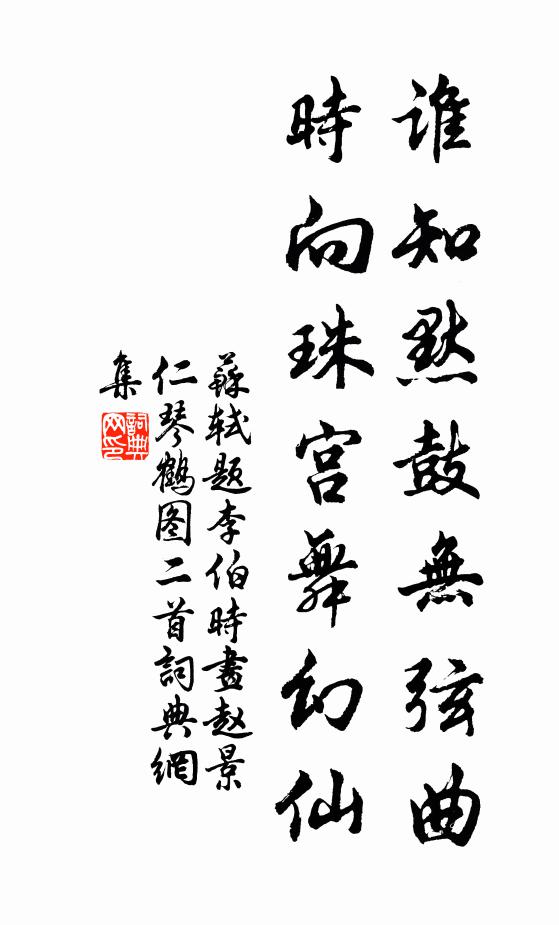 谁知黙鼓無弦曲
時向珠宫舞幻仙
蘇轼题李伯時畫赵景
仁琴鶴图二首詞典網
集
詞典
网印